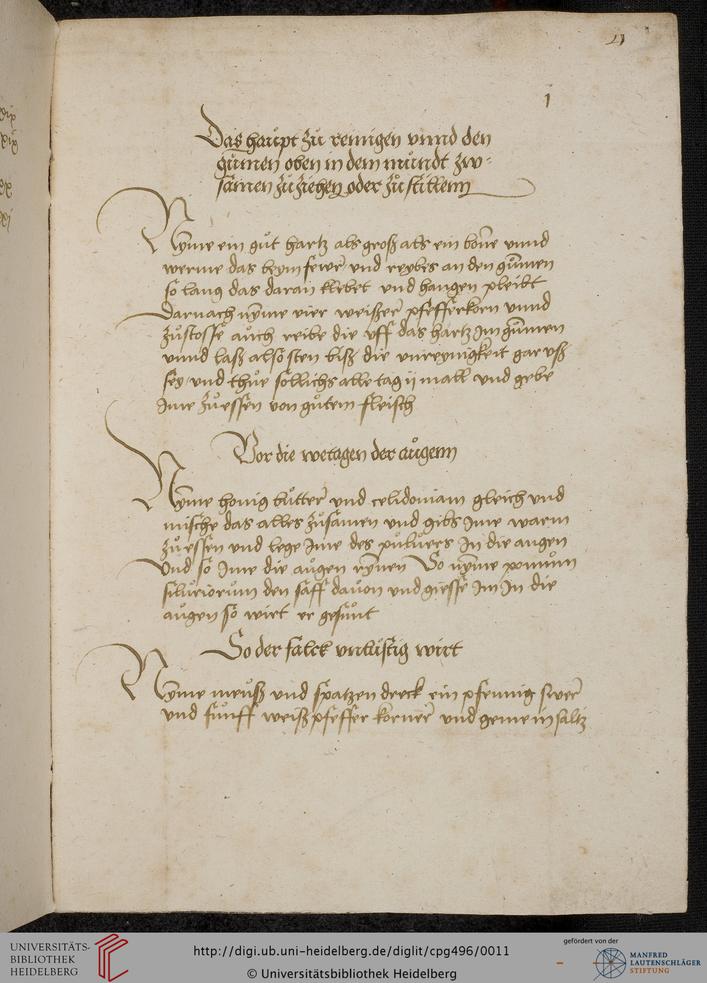 1
Das haupt zu reinigen vnnd den
gumen oben in dem mundt zw-
samen zu ziehen oder zu stillenn
Nyme ein gut hartz als groß als ein bone vnnd
werme das beym fewr vnd reybes an den gumen
so lang das daran klebet vnd hangen pleibt
Darnach nyme vier weisser pfefferkorn vnnd
zustosse auch reibe die vff das hartz Im gumen
vnnd laß also sten biß die vnreynigkeit gar vß
sey vnd thue sollichs alle tag ij mall vnd gebe
Ime zu essen von gutem fleisch
Vor die wetagen der augenn
Nyme honig butter vnd celidoniam gleich vnd
mische das alles zusamen vnd gibs Ime warm
zu essen vnd lege Ime des puluers In die augen
Vnd so Ime die augen rynen So nyme pomum
den safft dauon vnd giesse Im In die
augen so wirt er gesunt
So der falck vnlustig wirt
Nyme meuß vnd spatzen dreck ein pfennig swer
vnd funff weiß pfeffer korner vnd gemein saltz
UNIVERSITÄTS-
BIBLIOTHEK
HEIDELBERG
http://digi.ub.uni-heidelberg.de/diglit/cpg496/0011
© Universitätsbibliothek Heidelberg
gefördert von der
MANFRED
LAUTENSCHLÄGER
STIFTUNG